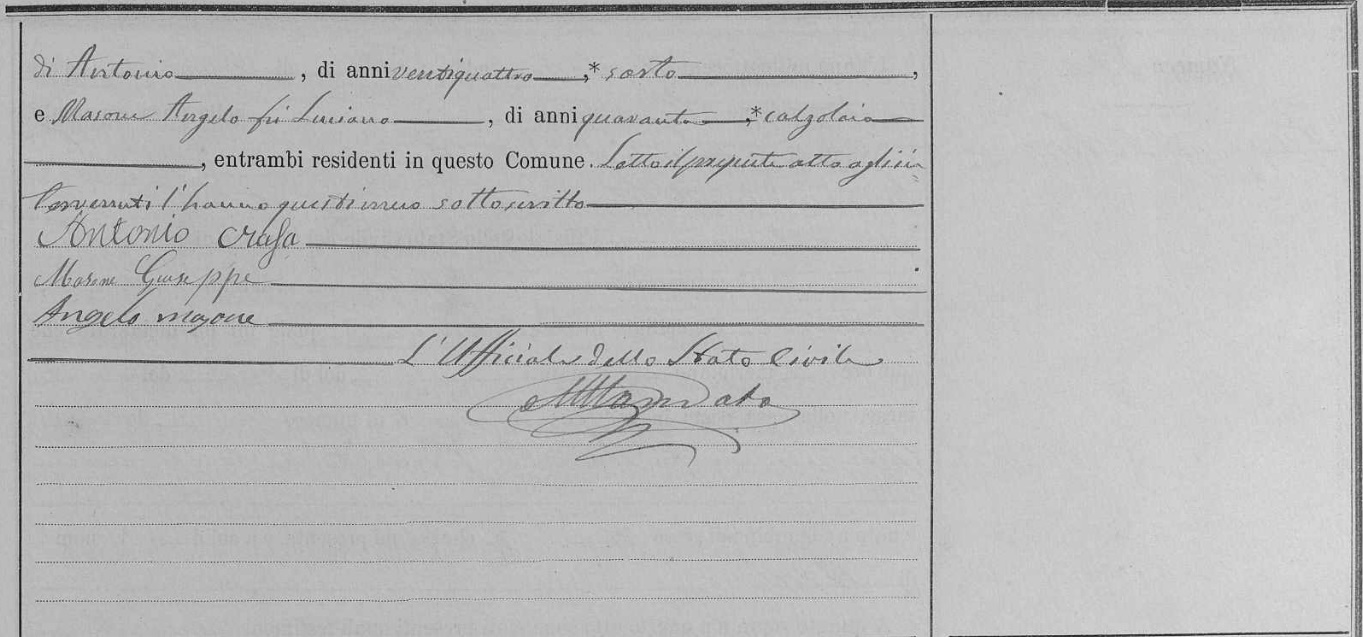 di Antonio, di anni ventiquattro, * sarto,
e Masone Angelo fu Luciano, di anni quaranta, * calzolaio
, entrambi residenti in questo Comune. Letto il presente atto agli in-
tervenuti l'hanno questi meco sottoscritto
Antonio
Masone Giuseppe
Angelo masone
L'Ufficiale dello Stato Civile